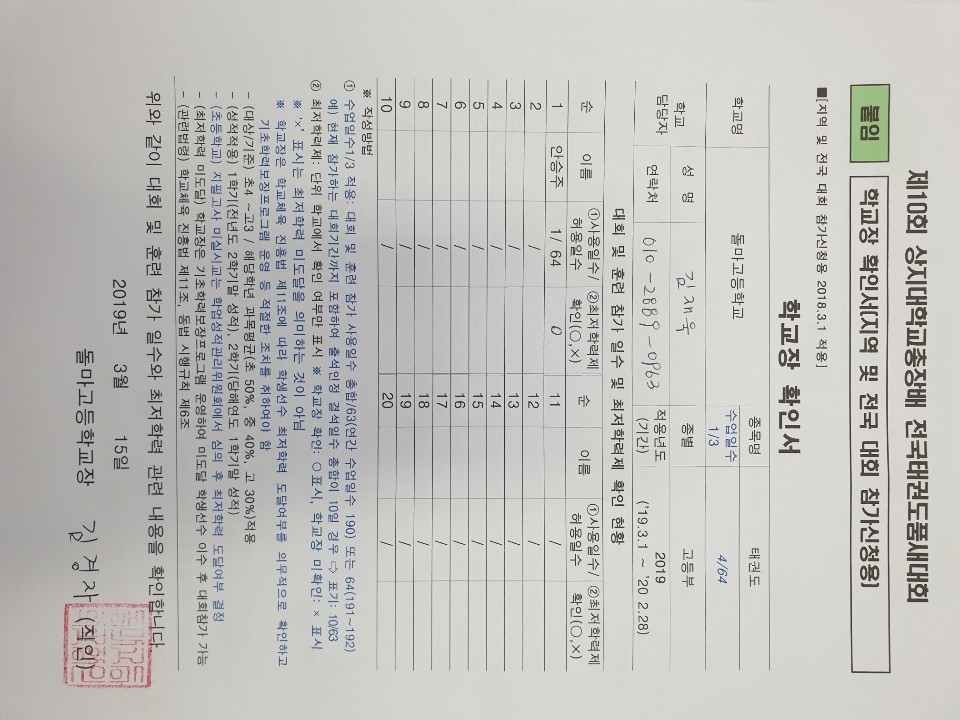 제10회 상지대학교총장배 전국태권도품새대회
붙임 학교장 확인서[지역 및 전국 대회 참가신청용]
■[지역 및 전국 대회 참가신청용 2018.3.1 적용]
학교장 확인서
학교명 돌마고등학교 종목명 태권도
수업일수 1/3 4/64
학교 담당자 성 명 김재욱 종별 고등부
연락처 010-2889-0963 적용년도 (기간) 2019 ('19.3.1 ~ '20 2.28)
대회 및 훈련 참가 일수 및 최저학력제 확인 현황
순 이름 ①사용일수/허용일수 ②최저학력제 확인(○,×) 순 이름 ①사용일수/허용일수 ②최저학력제 확인(○,×)
1 안승주 1/64 0 11 /
2 / 12 /
3 / 13 /
4 / 14 /
5 / 15 /
6 / 16 /
7 / 17 /
8 / 18 /
9 / 19 /
10 / 20 /
※ 작성방법
① 수업일수1/3 적용: 대회 및 훈련 참가 사용일수 총합/63(연간 수업일수 190) 또는 64(191~192)
예) 현재 참가하는 대회기간까지 포함하여 출석인정 결석일수 총합이 10일 경우 ⇨ 표기: 10/63
② 최저학력제: 단위 학교에서 확인 여부만 표시 ※ 학교장 확인: ○표시, 학교장 미확인: × 표시
※ '×' 표시는 최저학력 미도달을 의미하는 것이 아님
※ 학교장은 학교체육 진흥법 제11조에 따라 학생선수 최저학력 도달여부를 의무적으로 확인하고
기초학력보장프로그램 운영 등 적절한 조치를 취하여야 함
- (대상/기준) 초4 ~고3 / 해당학년 과목평균(초 50%, 중 40%, 고 30%)적용
- (성적적용) 1학기(전년도 2학기말 성적), 2학기(당해연도 1학기말 성적)
- (초등학교) 지필고사 미실시교는 학업성적관리위원회에서 심의 후 최저학력 도달여부 결정
- (최저학력 미도달) 학교장은 기초학력보장프로그램 운영하여 미도달 학생선수 이수 후 대회참가 가능
- (관련법령) 학교체육 진흥법 제11조, 동법 시행규칙 제6조
위와 같이 대회 및 훈련 참가 일수와 최저학력 관련 내용을 확인합니다.
2019년 3월 15일
돌마고등학교장 김경자 (직인)